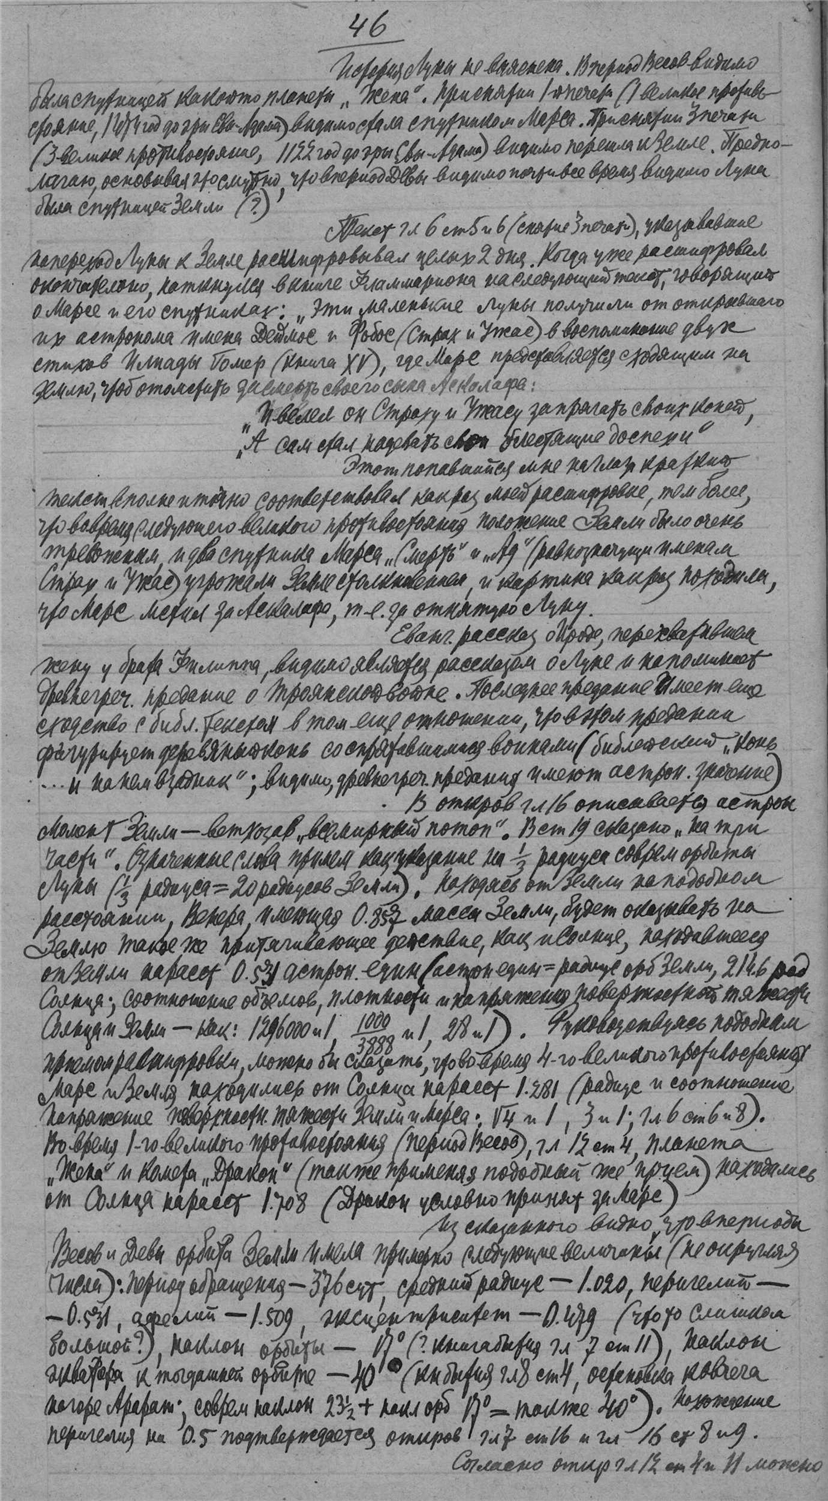 46
История Луны не выяснена. В период Весов видимо
была спутницей какой-то планеты „Жена“. При снятии 1 печати (1 великое противо-
стояние, год до эры Ева-Адам) видимо стала спутником Марса. При снятии 3 печати
(3 великое противостояние, 1122 год до эры Евы-Адама) видимо перешла к Земле. Предпо-
лагаю, основываясь смутно, что в период Девы видимо почти все время видимо Луна
была спутницей Земли (?)
Текст гл 6 ст 5 и 6 (снятие 3 печати), указывавшие
на переход Луны к Земле расшифровывал целых 2 дня. Когда уже расшифровал
окончательно, наткнулся в книге Фламмариона на следующий текст, говорящий
о Марсе и его спутниках: „Эти маленькие Луны получили от открывшего
их астронома имена Деймос и Фобос (Страх и Ужас) в воспоминание двух
стихов Илиады Гомер (книга XV), где Марс представляется сходящим на
землю, чтоб отомстить за смерть своего сына Аскалафа:
„И велел он Страху и Ужасу запрягать своих коней,
„А сам стал надевать свои блестящие доспехи“
Этот попавшийся мне на глаза краткий
текст вполне и точно соответствовал как раз моей расшифровке, тем более,
что во время следующего великого противостояния положение Земли было очень
тревожным, и два спутника Марса „Смерть“ и „Ад“ (равнозначущи именам
Страх и Ужас) угрожали Земле столкновением, и картина как раз походила,
что Марс мстил за Аскалафа, т-е. за отнятую Луну.
Еванг. рассказ о Ироде, перехватившем
жену у брата Филиппа, видимо является рассказом о Луне и напоминает
древнегреч. предание о Троянской войне. Последнее предание имеет еще
сходство с библ. текстом в том еще отношении, что в этом предании
фигурирует деревянный конь со спрятавшимися воинами (библейский „конь
... и на нем всадник“; видимо, древнегреч. предания имеют астрон. значение)
В откров гл 16 описывается астрон
момент Земли — ветхозав „всемирный потоп“. В ст 19 сказано „на три
части“. Означенные слова примем как указание на 1/3 радиуса соврем орбиты
Луны (1/3 радиуса = 20 радиусов Земли). Находясь от Земли на подобном
расстоянии, Венера, имеющая 0.857 массы Земли, будет оказывать на
Землю такое же притягивающее действие, как и Солнце, находившееся
от Земли на расст 0.531 астрон. един (астрон един = радиус орб Земли, 214.6 рад
Солнца; соотношение объемов, плотности и напряжения поверхностной тяжести
Солнца и Земли — как: 1296000 и 1, 1000/3888 и 1, 28 и 1). Руководствуясь подобным
приемом расшифровки, можно бы сказать, что во время 4-го великого противостояния
Марс и Земля находились от Солнца на расст 1.281 (радиус и соотношение
напряжение поверхностн. тяжести Земли и Марса: √4 и 1, 3 и 1; гл 6 ст 6 и 8).
Во время 1-го великого противостояния (период Весов), гл 12 ст 4, планета
„Жена“ и комета „Дракон“ (также применяя подобный же прием) находились
от Солнца на расст 1.708 (Дракон условно принят за Марс)
Из сказанного видно, что в периоды
Весов и Девы орбита Земли имела примерно следующие величины (не округляя
числа): период обращения — 376 сут, средний радиус — 1.020, перигелий —
— 0.531, афелий — 1.509, эксцентриситет — 0.479 (что-то слишком
большой?), наклон орбиты — 17° (? книга бытия гл 7 ст 11), наклон
экватора к тогдашней орбите — 40° (кн бытия гл 8 ст 4, остановка ковчега
на горе Арарат; соврем наклон 23½ + накл орб 17° = также 40°). Нахождение
перигелия на 0.5 подтверждается откров гл 7 ст 16 и гл 16 ст 8 и 9.
Согласно откр гл 12 ст 4 и 11 можно